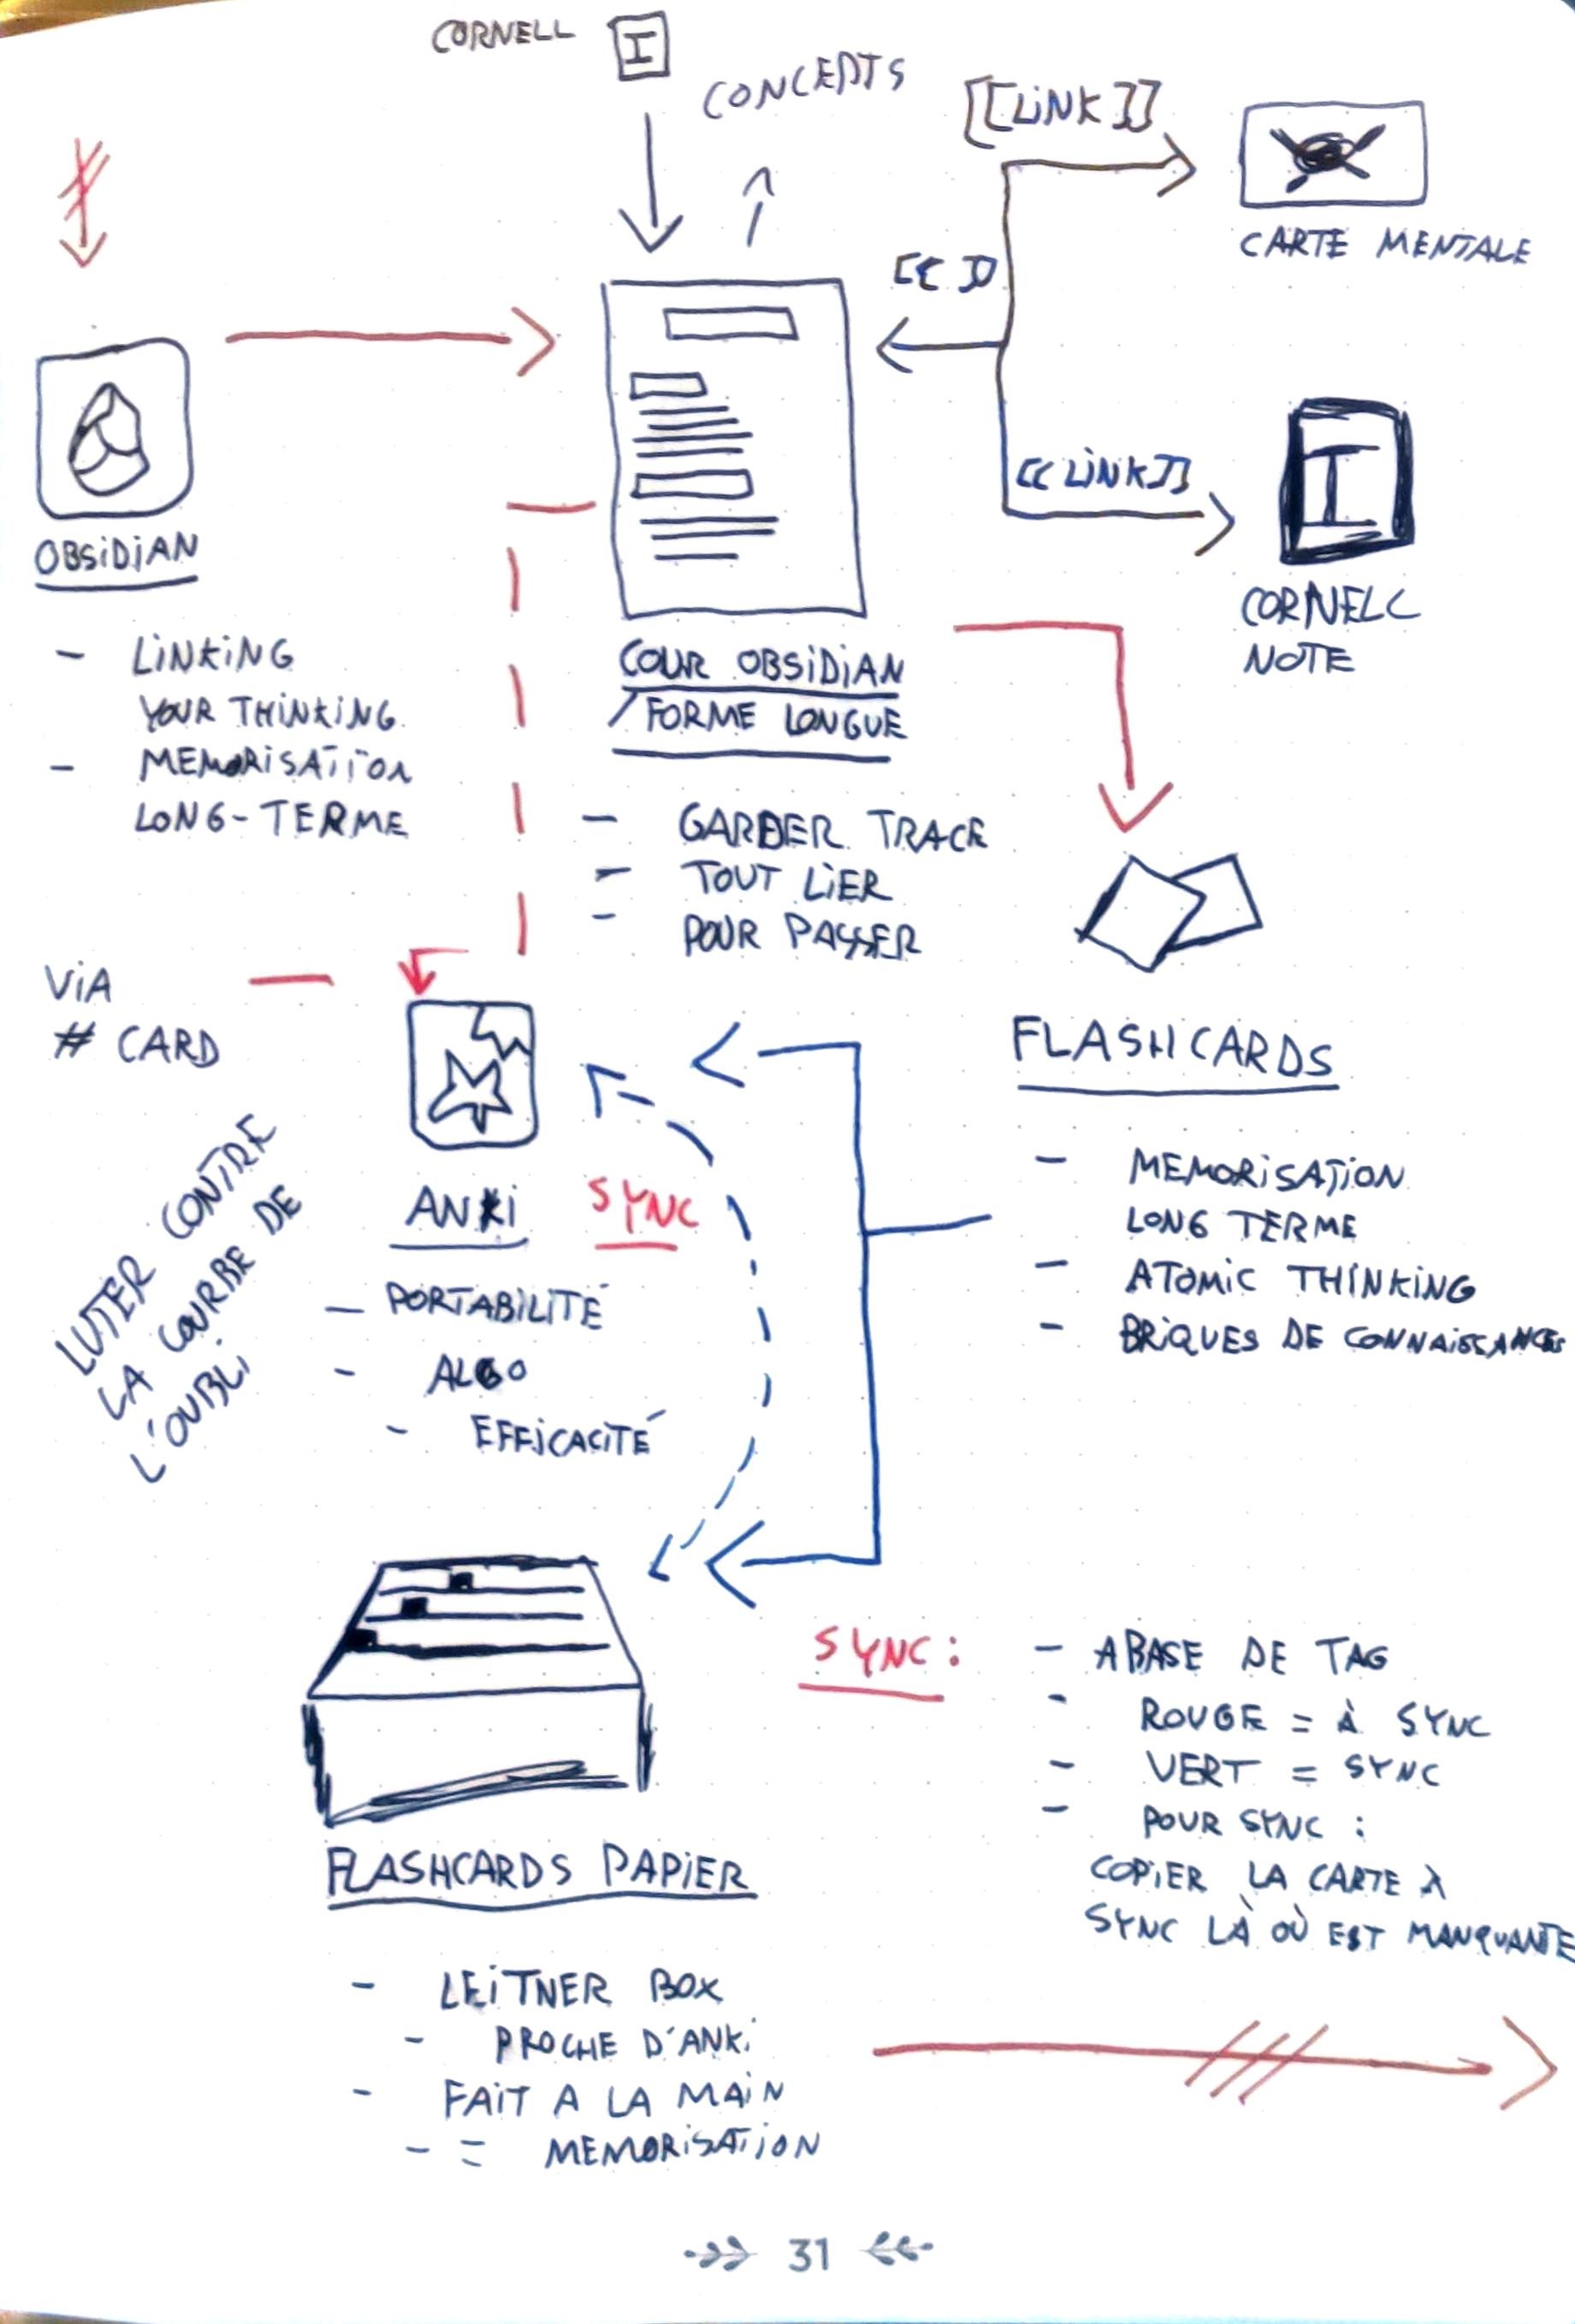 CORNELL
CONCEPTS
[[LiNK]]
CARTE MENTALE
[[ ]]
[[LiNK]]
CORNELL
NOTE
OBSiDiAN
- LiNKiNG
YOUR THiNKiNG
- MEMORiSATiON
LONG-TERME
COUR OBSiDiAN
/FORME LONGUE
- GARDER TRACE
- TOUT LiER
- POUR PASSER
ViA
# CARD
FLASHCARDS
- MEMORiSATiON
LONG TERME
- ATOMiC THiNKiNG
- BRiQUES DE CONNAiSSANCES
LUTER CONTRE
LA COURBE DE
L'OUBLi
ANKi
SYNC
- PORTABiLiTÉ
- ALGO
- EFFiCACiTÉ
SYNC :
- A BASE DE TAG
- ROUGE = À SYNC
- VERT = SYNC
- POUR SYNC :
COPiER LA CARTE À
SYNC LÀ OÙ EST MANQUANTE
FLASHCARDS PAPiER
- LEiTNER BOX
- PROCHE D'ANKi
- FAiT A LA MAiN
- = MEMORiSATiON
31